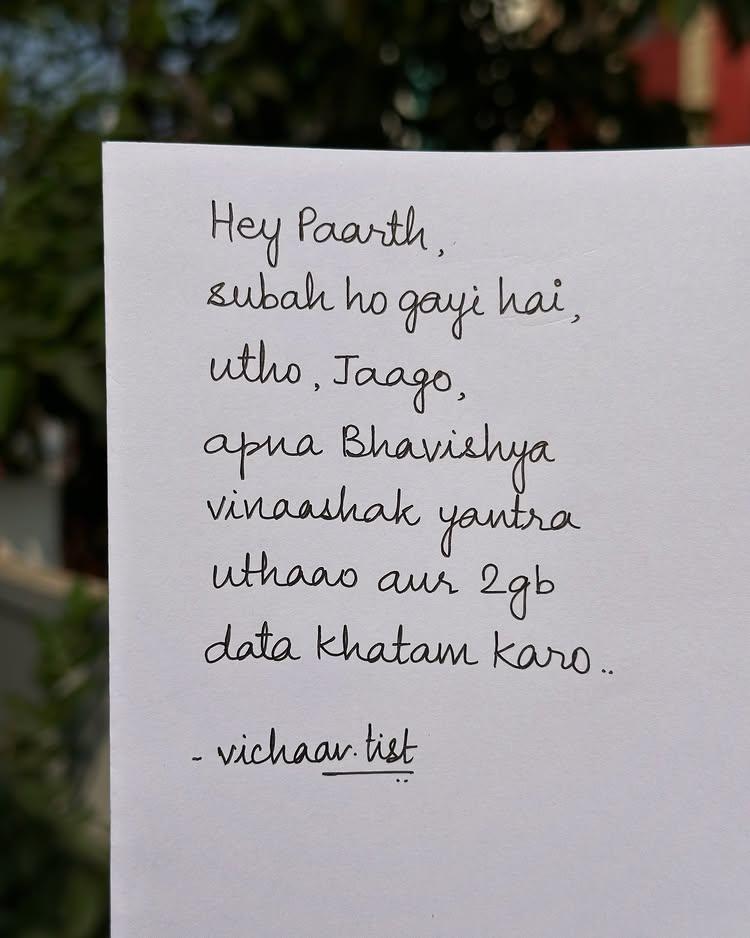 Hey Paarth,
subah ho gayi hai,
utho, Jaago,
apna Bhavishya
vinaashak yantra
uthaao aur 2gb
data khatam karo..
- vichaar.tist